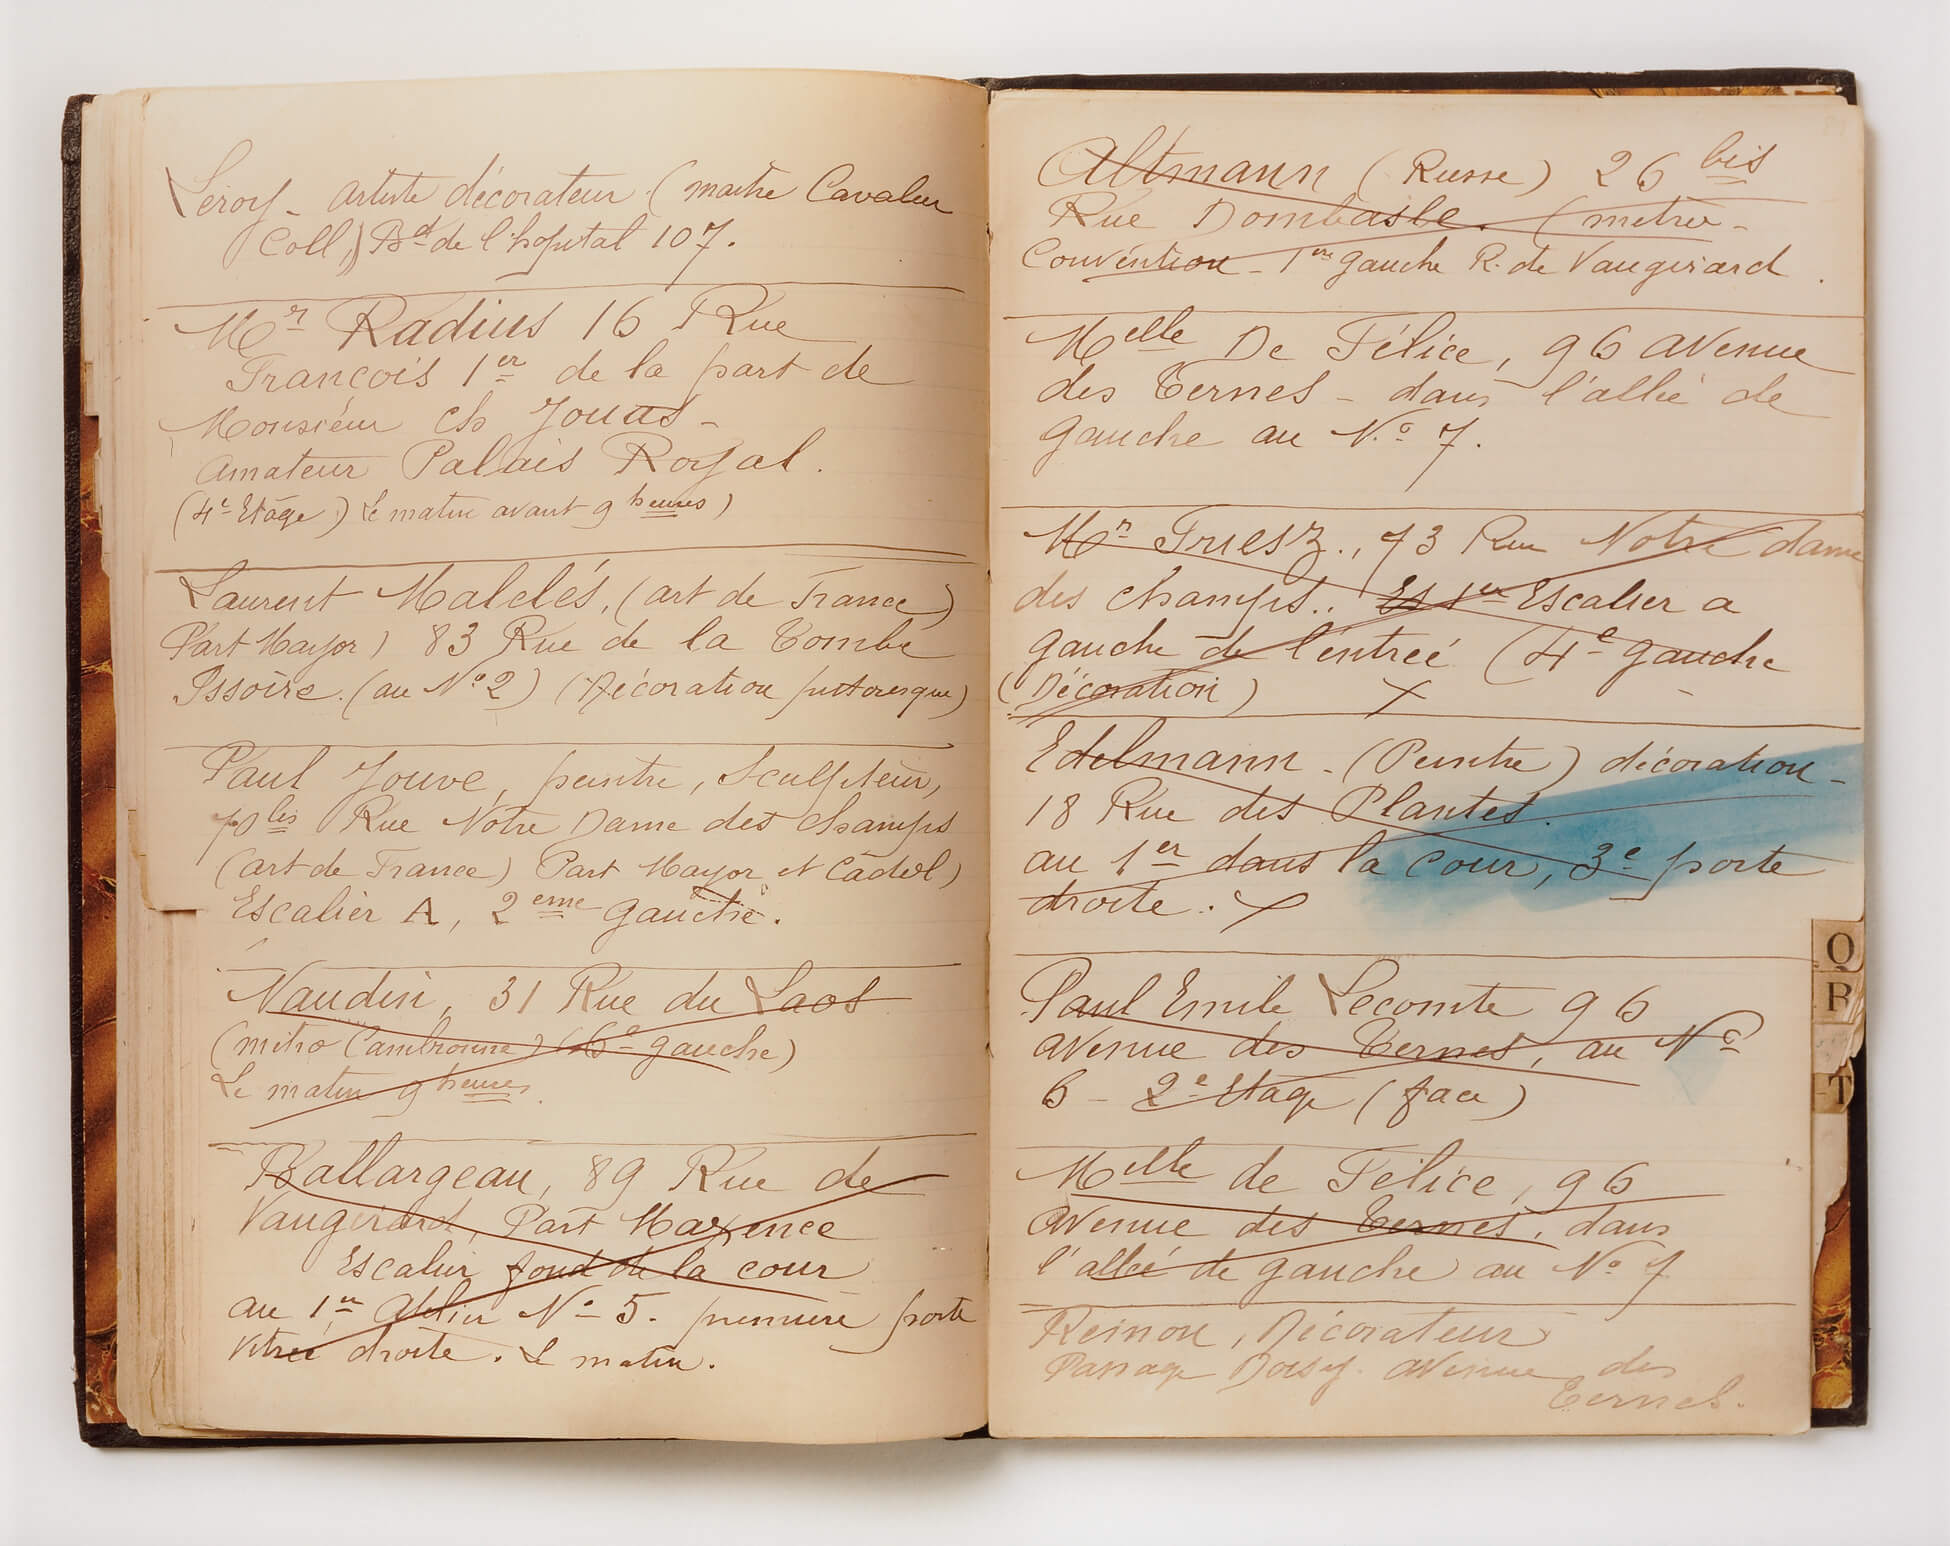 Leroy - artiste décorateur (maitre Cavalier
Coll) Bd de l'hopital 107.
Mr Radius 16 Rue
François 1er de la part de
Monsieur Ch Jouas -
amateur Palais Royal.
(4e Etage) Le matin avant 9 heures)
Laurent Malclés, (art de France)
Part Mayor) 83 Rue de la Tombe
Issoire. (au No 2) (Décoration pittoresque)
Paul Jouve, peintre, Sculpteur,
70 bis Rue Notre Dame des champs
(art de France) Part Mayor et Cadel)
Escalier A, 2eme gauche.
Naudin, 31 Rue du Laos
(métro Cambronne) (6e gauche)
Le matin 9 heures.
Ballargeau, 89 Rue de
Vaugirard, Part Maxence
Escalier fond de la cour
au 1er Atelier No 5. premiere porte
vitrée droite. Le matin.
Altmann (Russe) 26 bis
Rue Dombasle. (métro -
Convention - 1ere gauche R. de Vaugirard.
Melle De Félice, 96 avenue
des Ternes - dans l'allée de
gauche au No 7.
Mr Friesz., 73 Rue Notre dame
des champs.. Es 1er Escalier a
gauche de l'entreé (4e gauche
(Décoration) X
Edelmann - (Peintre) décoration -
18 Rue des Plantes.
au 1er dans la cour, 3e porte
droite. X
Paul Emile Lecomte 96
avenue des Ternes, au No
6 - 2e Etage (face)
Melle de Félice, 96
avenue des Ternes, dans
l'allée de gauche au No 7
Reinon, Décorateur
Passage Doisy. avenue des
Ternes.
Q
R
T